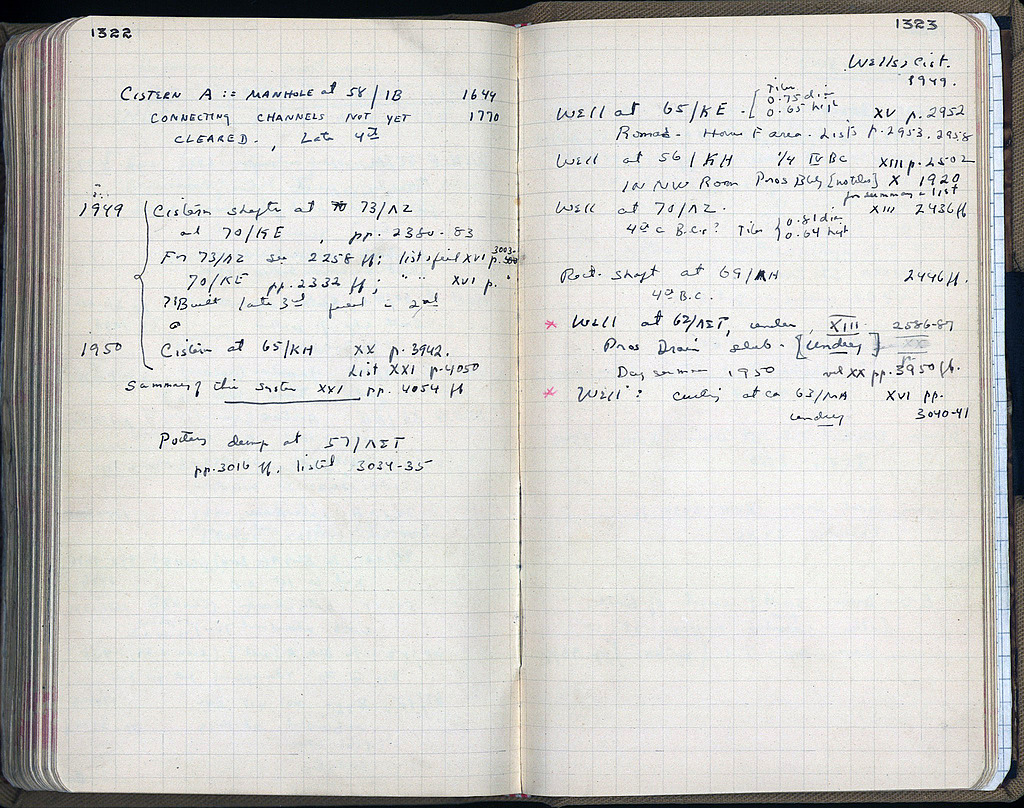 1322
CISTERN A :: MANHOLE at 58/IB 1644
CONNECTING CHANNELS NOT YET 1770
CLEARED. , Late 4th
1949 Cistern shafts at 73/ΛΖ
and 70/ΚΕ , pp. 2380-83
For 73/ΛΖ see 2258 ff; list XVI p. 3003-
70/ΚΕ pp. 2332 ff; " " XVI p. "
?Built late 3rd - 2nd
1950 Cistern at 65/ΚΗ XX p. 3942.
List XXI p. 4050
Summary of this system XXI pp. 4054 ff
Pottery dump at 57/ΛΣΤ
pp. 3016 ff. listed 3034-35
1323
Wells, Cist.
1949.
Well at 65/ΚΕ - [Tiles 0.75 dia 0.65 high XV p. 2952
Roman - House F area. Lists p. 2953, 2958
Well at 56/ΚΗ 1/4 IV BC XIII p. 2502
IN NW Room Pros Bldg [notes] X 1920
for summary + list
Well at 70/ΛΖ. XIII 2436 ff
4th c B.C.? Tiles {0.81 dia 0.64 high
Rect. shaft at 69/ΛΗ 2446 ff.
4th B.C.
* Well at 62/ΛΣΤ, under , XIII 2586-87
Pros Drain slab - [undug]
Dug summer 1950 vol XX pp. 3950 ff.
* Well: at ca 63/ΜΑ XVI pp.
undug 3040-41